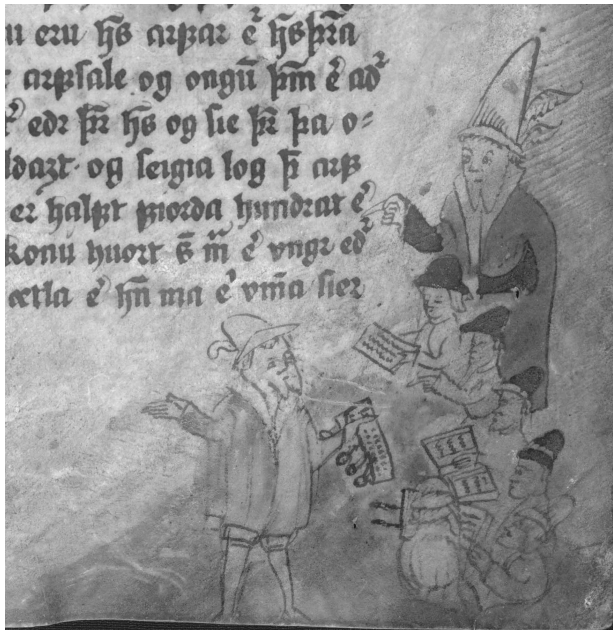 u eru h̅s arꝼar e᷎ h̅s þr̅a
arꝼsale og ongu̅ þm̅ e̅ ad᷎
edr þr̅ h̅s og sie þr̅ þa o⸗
ldazt · og seigia log þ̅ arꝼ
er halꝼt ꝼiorda hundrat e᷎
konu huort s̅ m̅ e᷎ vngr ed᷎
ætla e᷎ hn̅ ma e᷎ vm̅a sier